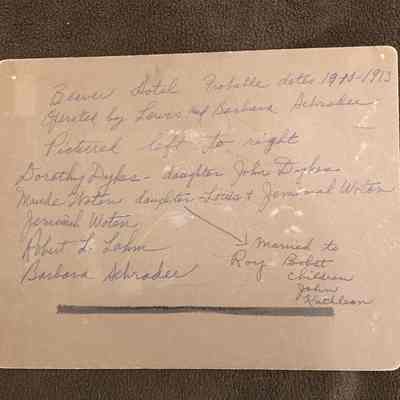 Beaver Hotel Probable dates 1910-1913
Operated by Lewis and Barbara Schrader
Pictured left to right
Dorothy Dykes - daughter John Dykes
Maude Woton daughter Louis & Jemimah Woton
Jemimah Woton
Robert L. Lahm
Barbara Schrader
Married to
Roy Bobst
Children
John
Kathleen